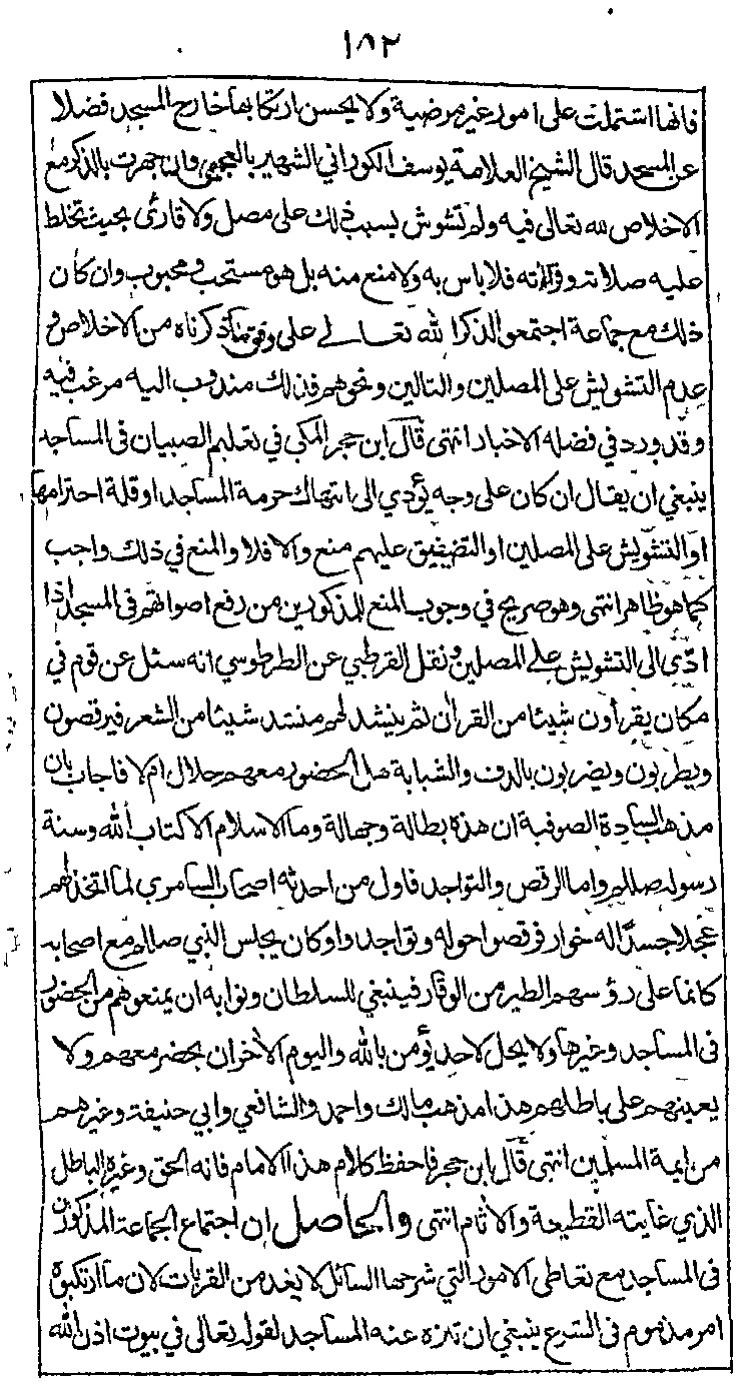 ١٨٢
فانها اشتملت على امور غير مرضية ولا يحسن ارتكابها خارج المسجد فضلا
عن المسجد قال الشيخ العلامة يوسف الكوراني الشهير بالعجمي وان جهرت بالذكر مع
الاخلاص لله تعالى فيه ولم تشوش بسبب ذلك على مصل ولا قارئ بحيث تخلط
عليه صلاته وقراءته فلا باس به ولا منع منه بل هو مستحب ومحبوب وان كان
ذلك مع جماعة اجتمعوا لذكر الله تعالى على وفق ما ذكرناه من الاخلاص و
عدم التشويش على المصلين والتالين ونحوهم فذلك مندوب اليه مرغب فيه
وقد ورد في فضله الاخبار انتهى قال ابن حجر المكي في تعليم الصبيان فى المساجد
ينبغي ان يقال ان كان على وجه يؤدي الى انتهاك حرمة المساجد او قلة احترامها
او التشويش على المصلين او التضييق عليهم منع والا فلا والمنع في ذلك واجب
كما هو ظاهر انتهى وهو صريح في وجوب المنع للمذكورين من رفع اصواتهم فى المسجد اذا
ادى الى التشويش على المصلين ونقل القرطبي عن الطرطوسي انه سئل عن قوم في
مكان يقرأون شيئا من القران ثم ينشد لهم منشد شيئا من الشعر فيرقصون
ويطربون ويضربون بالدف والشبابة هل الحضور معهم حلال ام لا فاجاب بان
مذهب السادة الصوفية ان هذه بطالة وجهالة وما الاسلام الا كتاب الله وسنة
رسوله صللم واما الرقص والتواجد فاول من احدثه اصحاب السامري لما اتخذ لهم
عجلا جسدًا له خوار فرقصوا حوله وتواجدوا وكان يجلس النبي صللم مع اصحابه
كانما على رؤسهم الطير من الوقار فينبغي للسلطان ونوابه ان يمنعوهم من الحضور
فى المساجد وغيرها ولا يحل لاحد يؤمن بالله واليوم الآخر ان يحضر معهم ولا
يعينهم على باطلهم هذا مذهب مالك واحمد والشافعي وابي حنيفة وغيرهم
من ايمة المسلمين انتهى قال ابن حجر فاحفظ كلام هذا الامام فانه الحق وغيره الباطل
الذي غايته القطيعة والآثام انتهى والحاصل ان اجتماع الجماعة المذكورين
فى المساجد مع تعاطى الامور التي شرحها السائل لا يعد من القربات لان ما ارتكبوه
امر مذموم فى الشرع ينبغي ان تنزه عنه المساجد لقوله تعالى في بيوت اذن الله